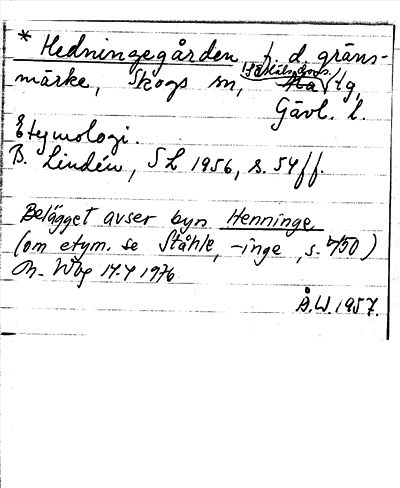 * Hedningegården, f. d. gräns-
märke, Skogs sn, Ha tg,
Gävl. l.
Etymologi.
B. Lindén, SL 1956, s. 54 ff.
Belägget avser byn Henninge
(om etym. se Ståhle, -inge, s. 450)
M. Wbg 14.4 1976
Å.W. 1957.